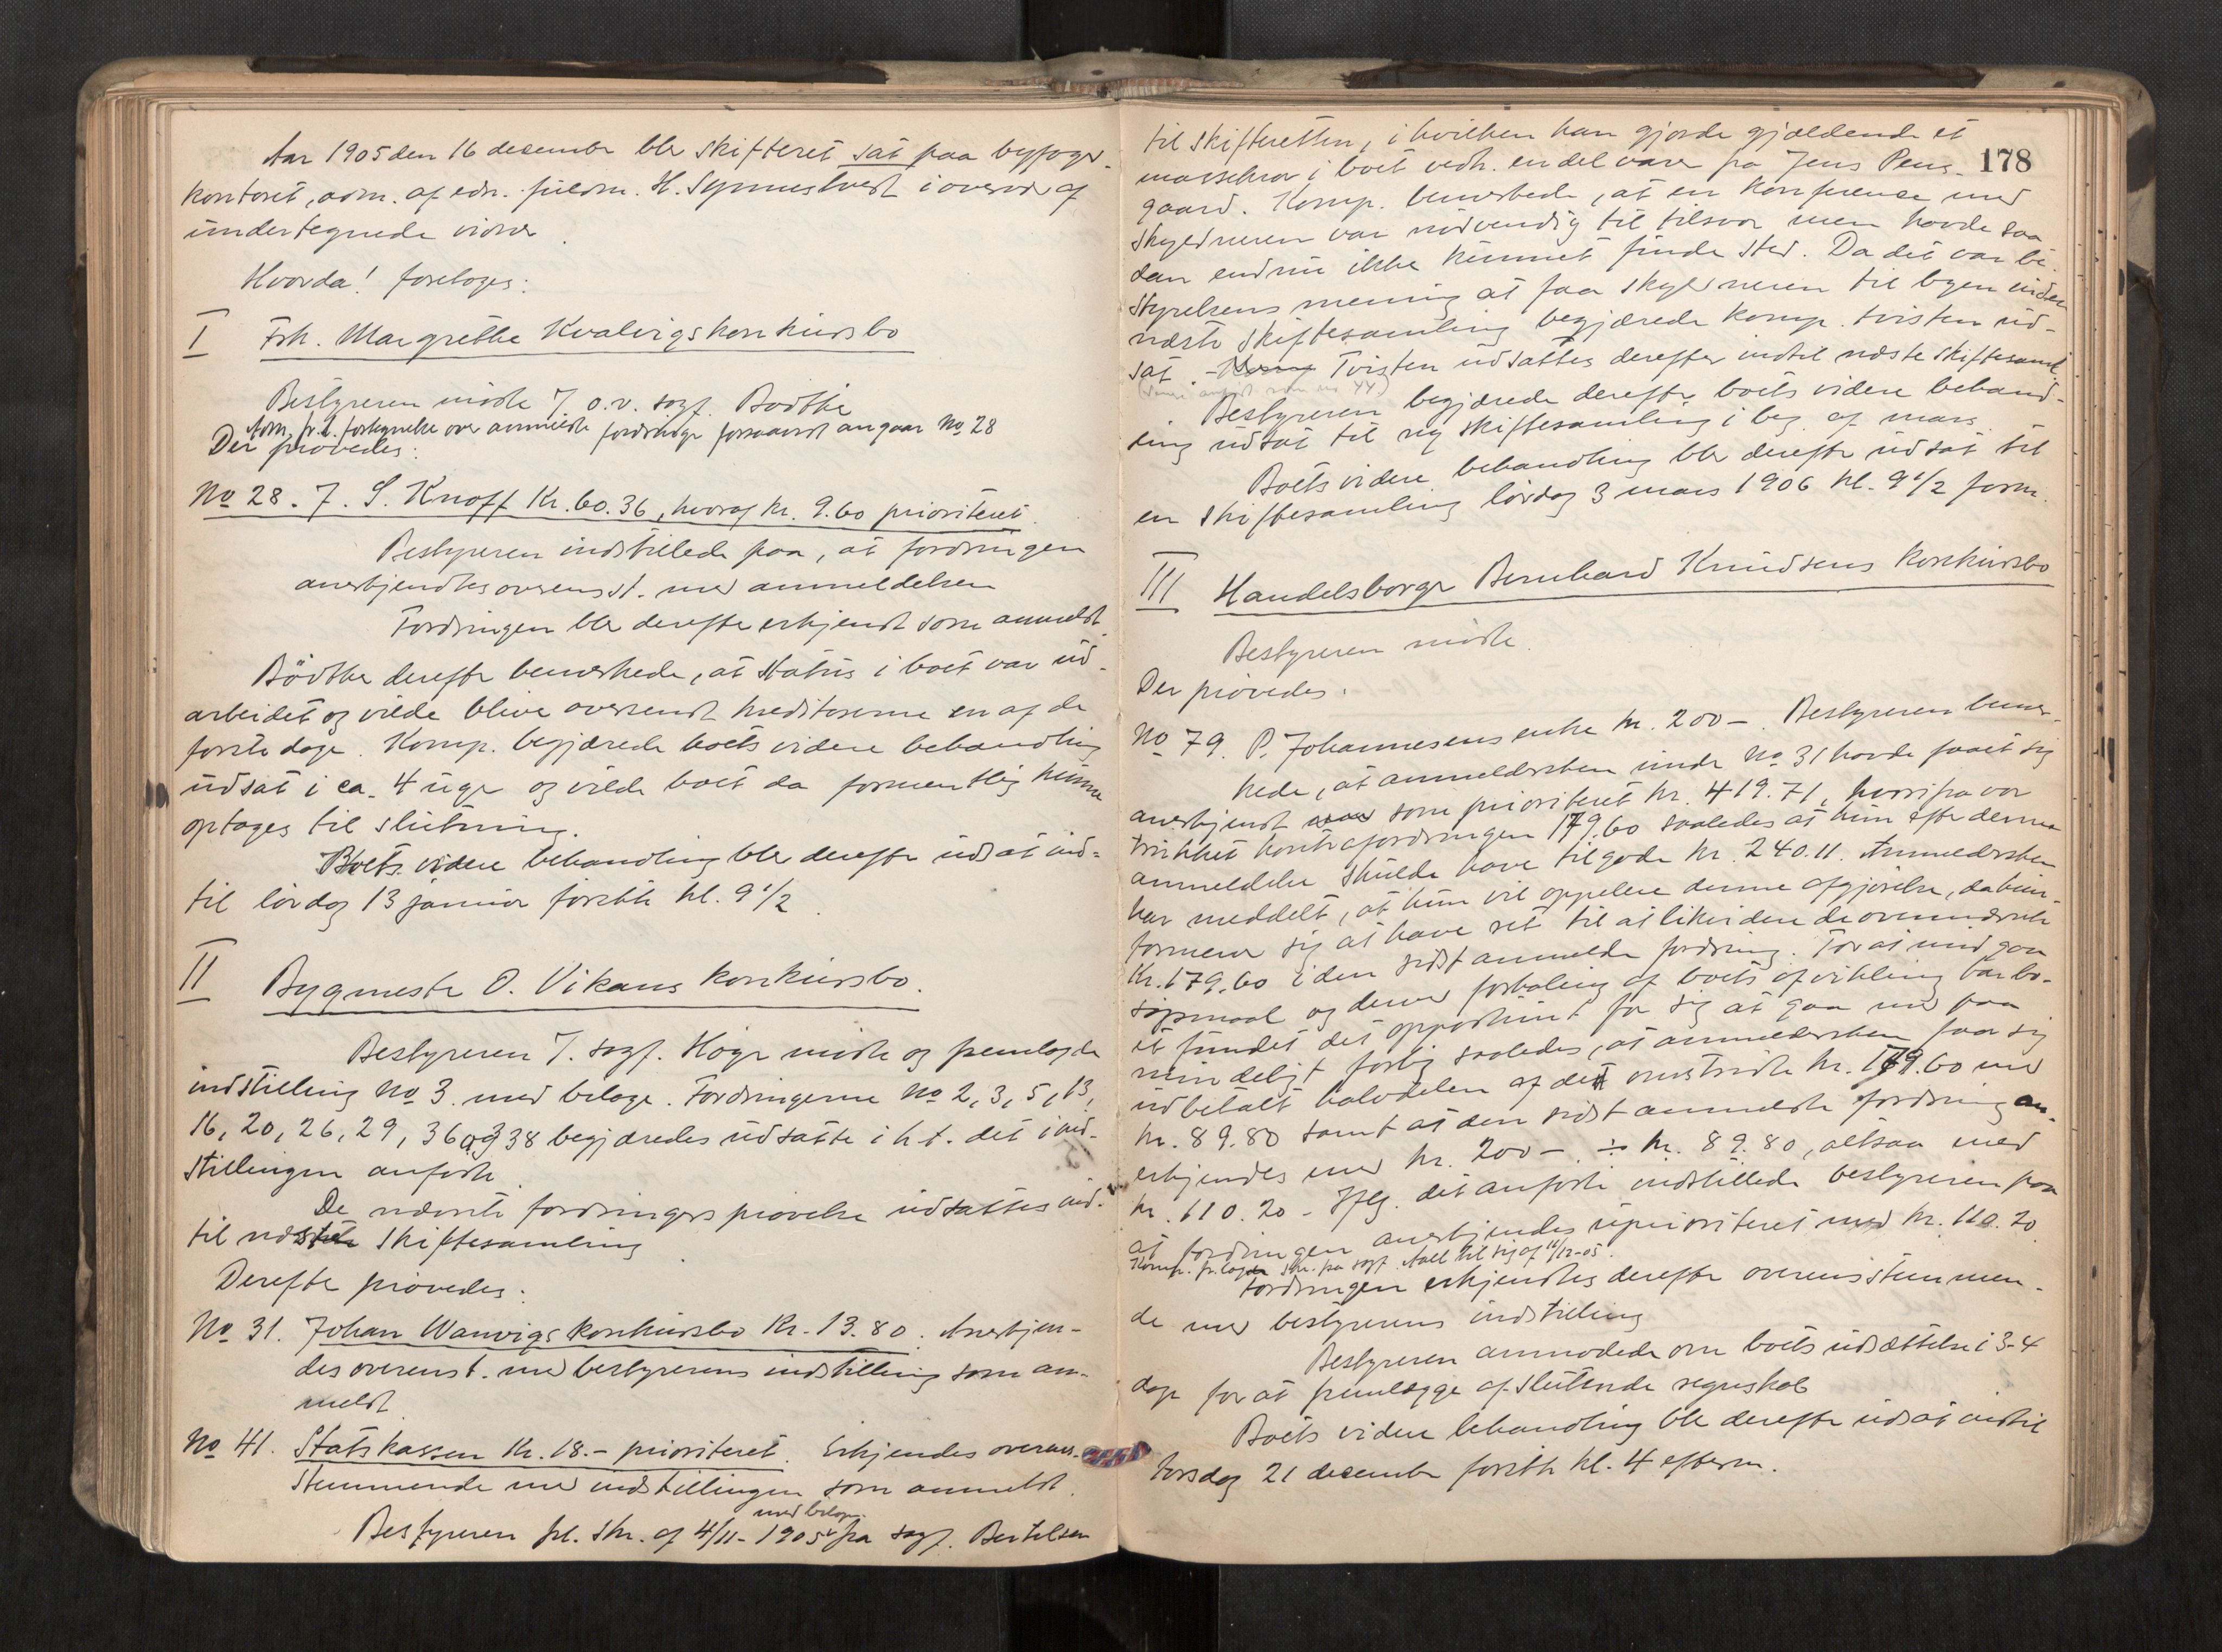 Aar 1905 den 16 desember blev skifteret sat paa byfoged-
kontoret, adm. af edsv. fuldm. H. Symnestvedt i overvær af
undertegnede vidner.
Hvorda! foretoges:
I Frk. Margrethe Kvalvigs konkursbo
Bestyreren mødte f. o.r. sagf. Bödtker
Adm. fr.l. fortegnelse over anmeldte fordringer forsaavidt angaar No 28
Der prøvedes:
No 28. F. S. Knoff Kr. 60.36, hvoraf kr. 9.60 prioriteret.
Bestyreren indstillede paa, at fordringen
anerkjendtes overensst. med anmeldelsen
Fordringen blev derefter erkjendt som anmeldt.
Bödtker derefter bemerkede, at status i boet var ud-
arbeidet og vilde blive oversendt kreditorerne en af de
første dage. Komp. begjærede boets videre behandling
udsat i ca. 4 uger og vilde boet da formentlig kunne
optages til slutning.
Boets videre behandling blev derefter udsat ind-
til lørdag 13 januar førstk. kl. 9 1/2.
II Bygmester O. Vikans konkursbo.
Bestyreren f. sagf. Høyer mødte og fremlagde
indstilling No 3 med bilage. Fordringerne No 2, 3, 5, 13,
16, 20, 26, 29, 36 og 38 begjæredes udsatte i h.t. det i ind-
stillingen anførte.
De nævnte fordringers prøvelse udsattes ind-
til næste skiftesamling
Derefter prøvedes:
No 31. Johan Wanvigs konkursbo Kr. 13.80. Anerkjen-
des overenst. med bestyrerens indstilling som an-
meldt
No 41. Statskassen Kr. 18.- prioriteret. Erkjendes overens-
stemmende med indstillingen som anmeldt.
med bilage
Bestyreren frl. skr. af 4/11-1905 fra sagf. Bertelsen
178
til skifteretten, i hvilken han gjorde gjældende et
massekrav i boet vedr. en del varer fra Jens Peus-
gaard. Komp. bemerkede, at en konferense med
skyldneren var nødvendig til tilsvar men havde saa
dan endnu ikke kunnet finde sted. Da det var be-
styrelsens mening at faa skyldneren til byen inden
næste skiftesamling begjærede komp. tvisten ud-
sat. Tvisten udsattes derefter indtil næste skiftesaml.
Bestyreren begjærede derefter boets videre behand-
ling udsat til ny skiftesamling i beg. af mars.
Boets videre behandling blev derefter udsat til
en skiftesamling lørdag 3 mars 1906 kl. 9 1/2 form.
III Handelsborger Bernhard Knudsens konkursbo
Bestyreren mødte.
Der prøvedes:
No 79. P. Johannesens enke kr. 200-. Bestyreren bemer-
kede, at anmeldersken under No 31 havde faaet sig
anerkjendt som prioriteret kr. 419.71, hvorifra var
trukket kontrafordringen 179.60 saaledes at hun efter denne
anmeldelse skulde have tilgode kr. 240.11. Anmeldersken
har meddelt, at hun vil appellere denne afgjørelse, da hun
formener sig at have ret til at likvidere de ovennævnte
Kr. 179.60 i den sidst anmeldte fordring. For at undgaa
søgsmaal og derved forhaling af boets afvikling har bo-
et fundet det opportunt for sig at gaa med paa
mindeligt forlig saaledes, at anmeldersken faar sig
udbetalt halvdelen af det omstridte kr. 179.60 med
kr. 89.80 samt at den sidst anmeldte fordring an-
erkjendes med kr. 200-. ÷ kr. 89.80, altsaa med
kr. 110.20 - Iflg. det anførte indstillede bestyreren paa
at fordringen anerkjendes uprioriteret med kr. 110.20
Komp. fr.lagde skr. fra sagf. Aall til sig af 16/12-05.
Fordringen erkjendtes derefter overensstemmen-
de med bestyrerens indstilling
Bestyreren anmodede om boets udsættelse i 3-4
dage for at fremlægge afsluttende regnskab
Boets videre behandling blev derefter udsat indtil
torsdag 21 desember førstk. kl. 4 efterm.